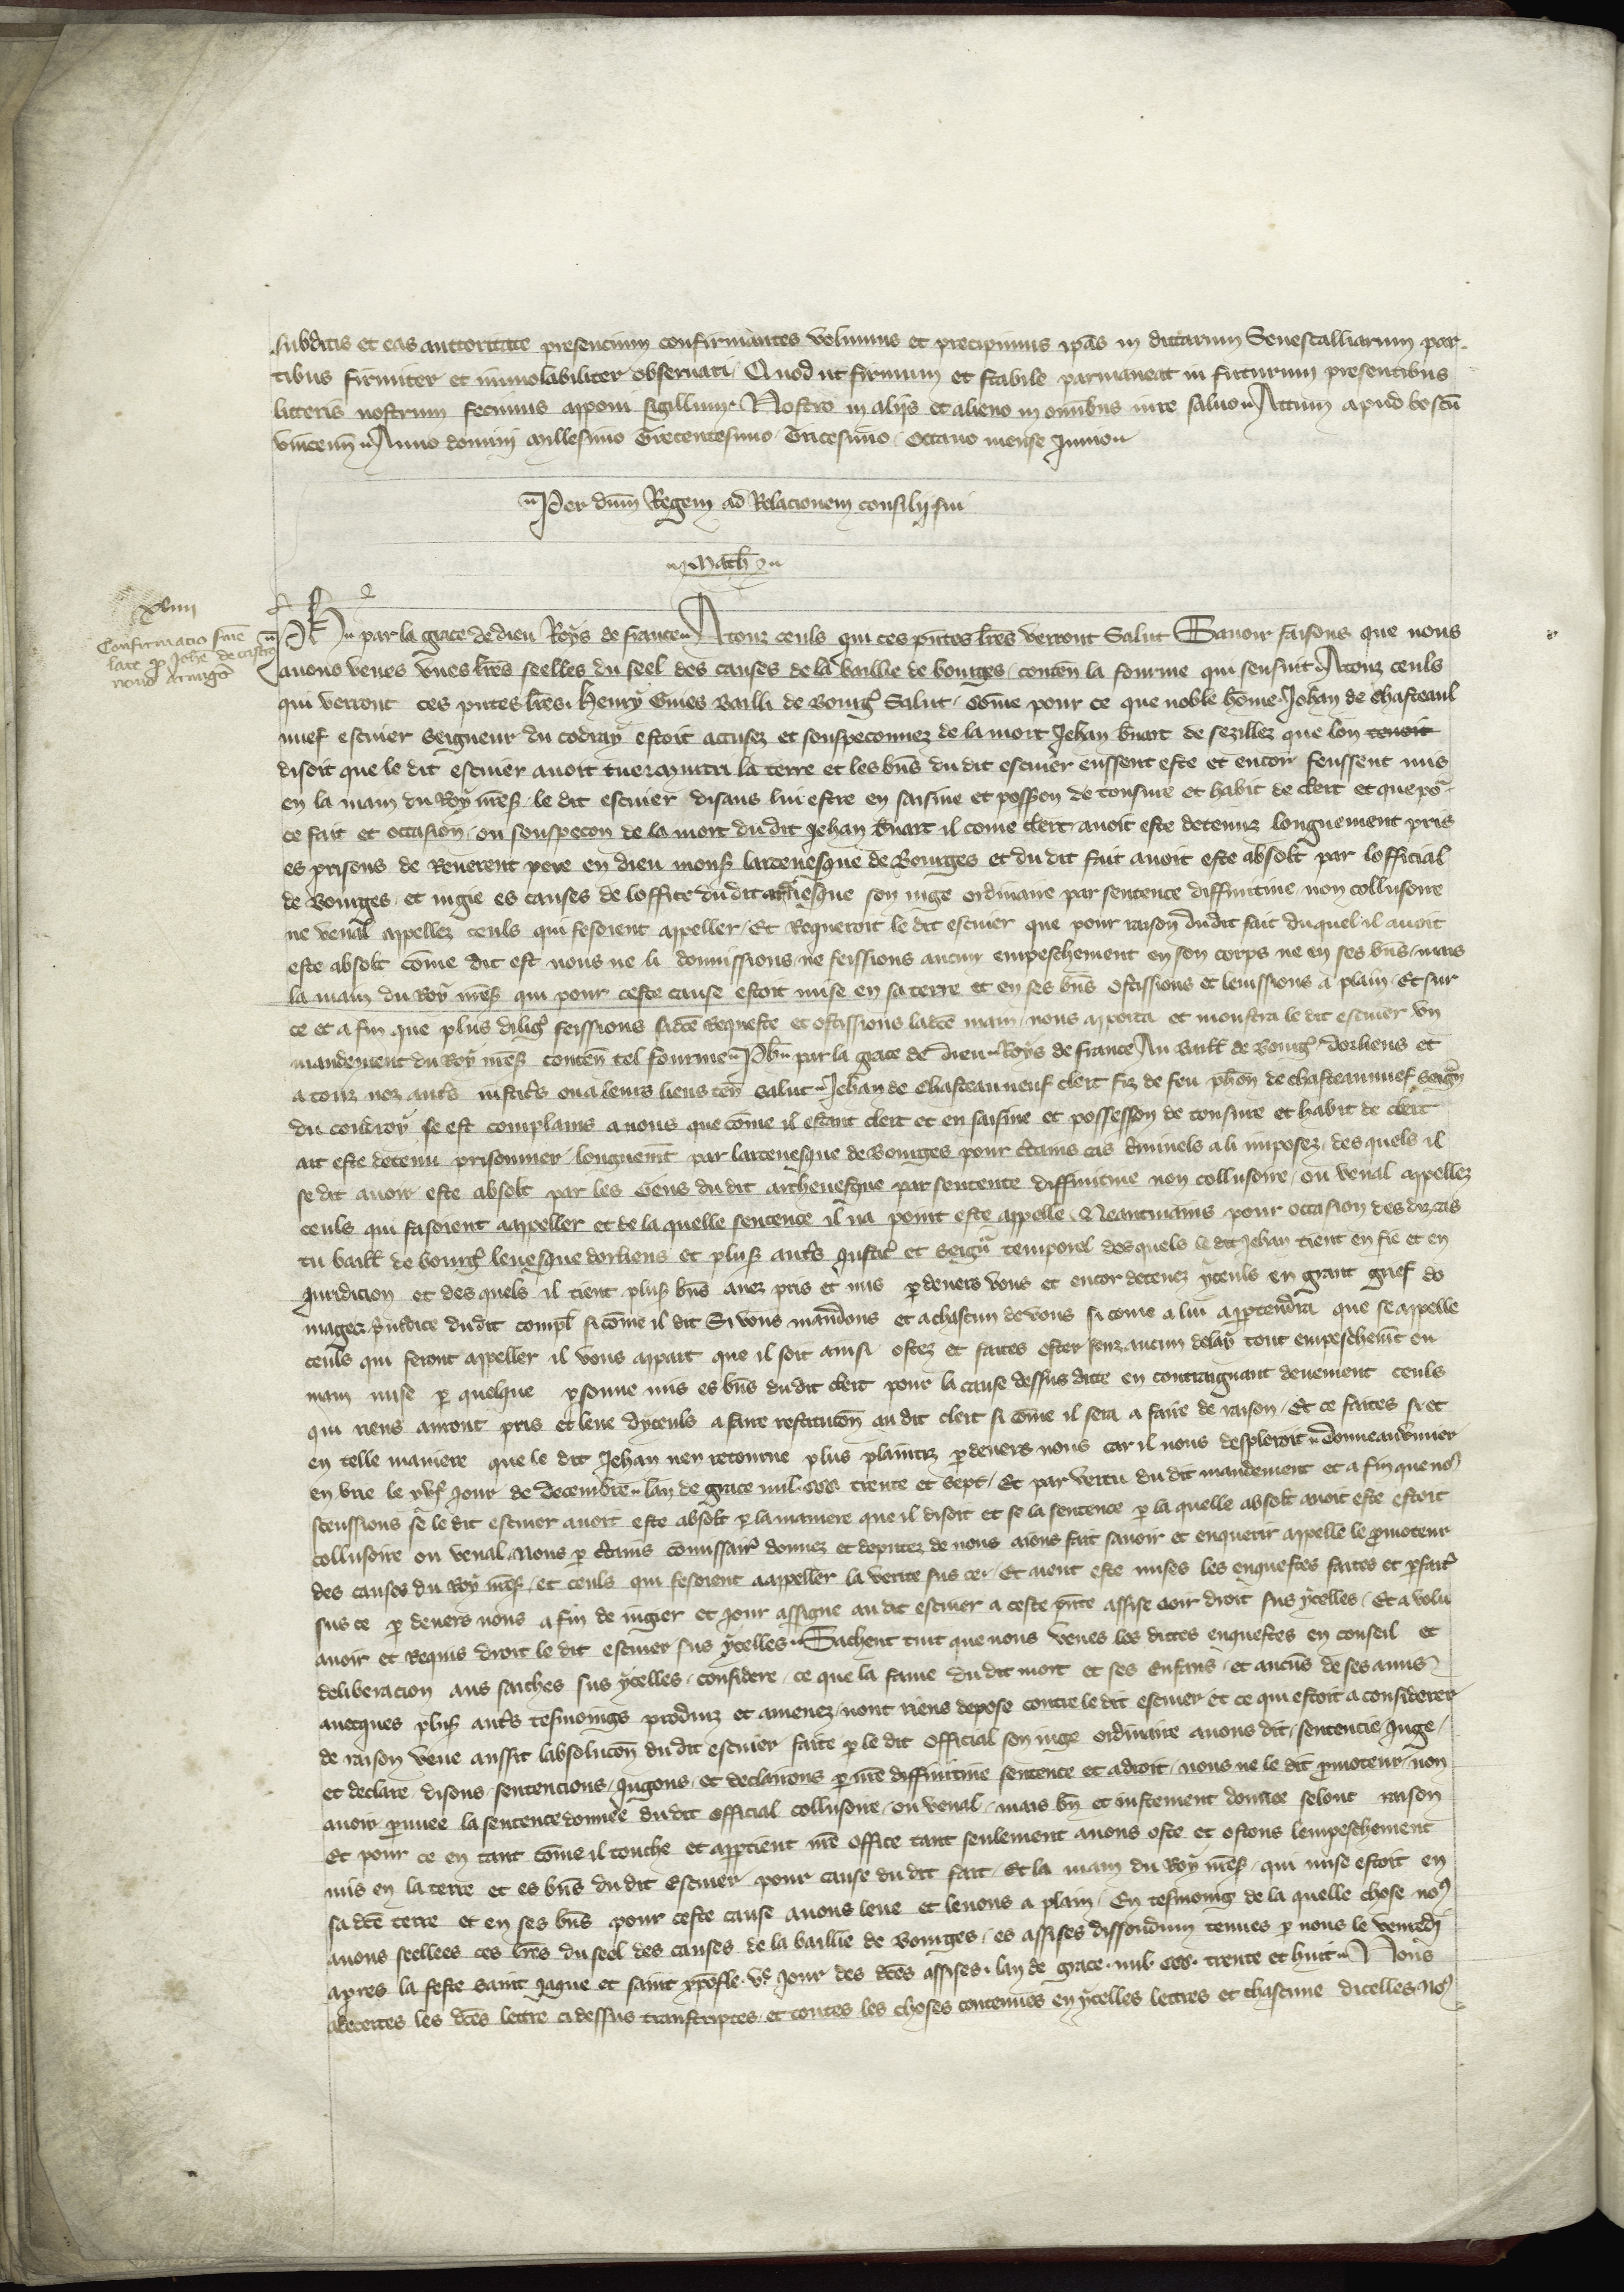 subditis et eas auctoritate presencium confirmantes volumus et precipimus ip̄as in dictarum Senescalliarum par-
tibus firmiter et inviolabiliter observari. Quod ut firmum et stabile parmaneat in futurum presentibus
litteris nostrum fecimus apponi sigillum. Nostro in aliis et alieno in omnibus iure salvo. Actum apud boscū
vincenn̄. Anno domini millesimo Trecentesimo Tricesimo Octavo mense Junio.
Per dn̄m Regem ad Relacionem consilii sui
Math
xliiii
Confirmatio sn̄ie
late p Joh̄e de castro
novo armig̓o
Ph̄ par la grace de dieu Roys de france. A touz ceuls qui ces pn̄tes lr̄es verront Salut Savoir faisons que nous
avons veues unes lr̄es seelles du seel des causes de la baillie de bourges, conten̄ la fourme qui sensuit. A touz ceuls
qui verront ces pn̄tes lr̄es. Henry Gines Bailli de Bourg̓ Salut. Cōme pour ce que noble hōme Jehan de Chasteaul
nuef escuier Seigneur du codray estoit accusez et souspeconnez de la mort Jehan b̄nart de sezillez que lon tenoit
disoit que le dit escuier avoit tue et murtri la terre et les bn̄s du dit escuier eussent este et encor feussent mis
en la main du Roy n̄res̓. le dit escuier disans lui estre en saisine et poss̄on de tonsure et habit de clerc et que po̓
ce fait et occasion, ou souspecon de la mort du dit Jehan b̄nart il come clerc avoit este detenuz longuement pris
es prisons de Reverent pere en dieu mons̓ larcevesque de Bourges et du dit fait avoit este absolt par lofficial
de Bourges, et iugie es causes de loffice du dit arcevesque son iuge ordinaire par sentence diffinitive non collusoire
ne venal appellez ceuls qui fesoient appeller. Et Requeroit le dit escuier que pour raison du dit fait duquel il avoit
este absolt cōme dit est nous ne li donnissions ne feissions aucun empeschement en son corps ne en ses bn̄s, mais
la main du Roy n̄res̓ qui pour ceste cause estoit mise en sa terre et en ses bn̄s ostissions et levissions a plain. Et sur
ce et a fin que plus dilig̓ feissions sadc̄e Requeste et ostissions ladc̄e main, nous apporta et monstra le dit escuier un
mandement du Roy n̄res̓ conten̄ tel fourme. Ph̄ par la grace de dieu Roys de France Au Baill̄ de Bourg̓, dorliens et
a touz noz autr̄s iustic̓s ou a leurs lieus ten̄ salut. Jehan de Chasteauneuf clerc fiz de feu ph̄on de chasteaunuef Seig̓
du coudroy se est complains a nous que cōme il estant clerc et en saisine et possession de tonsure et habit de clerc
ait este detenu prisonnier longuemt par larcevesque de Bourges pour c̄tains cas criminels a li imposez, des quels il
se dit avoir este absolt par les Gens du dit archevesque par sentente diffinitive non collusoire, ou venal appellez
ceuls qui fasoient aappeller et de la quelle sentence il na point este appelle. Neantmains pour occasion des diz cas
tu baill̄ de bourg̓ levesque dorliens et plus̓ autr̄s Justic̓ et Seign̄ temporel desquels le dit Jehan tient en fie et en
Juridicion et des quels il tient plus̓ bn̄s avez pris et mis p devers vous et encor detenez yceuls en grant grief do
mages p̄iudice du dit compl̄ si cōme il dit Si vous mandons et a chascun de vous si come a lui appertendra que se appelle
ceuls qui feront appeller il vous appart que il soit ainsi ostez et faites oster senz aucun delay tout empeschemt ou
main mise p quelque p̄sonne mis es bn̄s du dit clerc pour la cause dessus ditte en contraignant deuement ceuls
qui riens auront pris et leve dyceuls a faire restitucōn au dit clerc si cōme il sera a faire de raison. Et ce faites si et
en telle maniere que le dit Jehan nen retourne plus plaintiz p devers nous car il nous despleroit. Donne au vivier
en brie le xvȷͤ Jour de Decembre lan de grace mil ccc trente et sept. Et par vertu du dit mandement et a fin que no9
sceussions se le dit escuier avoit este absolt p la maniere que il disoit et se la sentence p la quelle absolt avoit este estoit
collusoire ou venal. Nous p c̄tains cōmissair̓ donnez et deputez de nous aions fait savoir et enquerir appelle le p̄moteur
des causes du Roy n̄res̓. et ceuls qui fesoient aappeller la verite sus ce. Et aient este mises les enquestes faites et p̄fait̓
sus ce p devers nous a fin de iugier et Jour assigne au dit escuier a ceste p̄nte assise ooir droit sus ycelles. Et a volu
avoir et Requis droit le dit escuier sus ycelles. Sachent tuit que nous veues les dittes enquestes en conseil et
deliberacion aus saiches sus ycelles, considere ce que la fame du dit mort et ses Enfans, et aucūs de ses amis
avecques plus̓ autr̄s tesmoings produiz et amenez, nont riens depose contre le dit escuier, et ce qui estoit a considerer
de raison veue aussit labsolucōn du dit escuier faite p le dit official son iuge ordinaire avons dit, sentencie, Juge,
et declare, disons, sentencions, Jugons, et declairons p n̄re diffinitive sentence et a droit, nous ne le dit p̄moteur, non
avoir p̄uuee la sentence donnee du dit official collusoire, ou venal, mais bn̄ et iustement donnee selont raison
Et pour ce en tant cōme il touche et appartient n̄re office tant seulement avons oste et ostons lempeschement
mis en la terre et es bn̄s du dit Escuier pour cause du dit fait. Et la main du Roy n̄res̓. qui mise estoit en
sa dc̄e terre et en ses bn̄s pour ceste cause avons leve et levons a plain. En tesmoing de la quelle chose no9
avons seellees ces lr̄es du seel des causes de la baillie de Bourges, es assises dissoudun tenues p nous le venredj
apres la feste Saint Jaque et saint xpōfle. vͤ Jour des dc̄es assises. lan de grace mil ccc. trente et huit. Nous
adecertes les dc̄es lettre ci dessus transcriptes, et toutes les choses contenues en ycelles lettres et chascune dicelles. No9